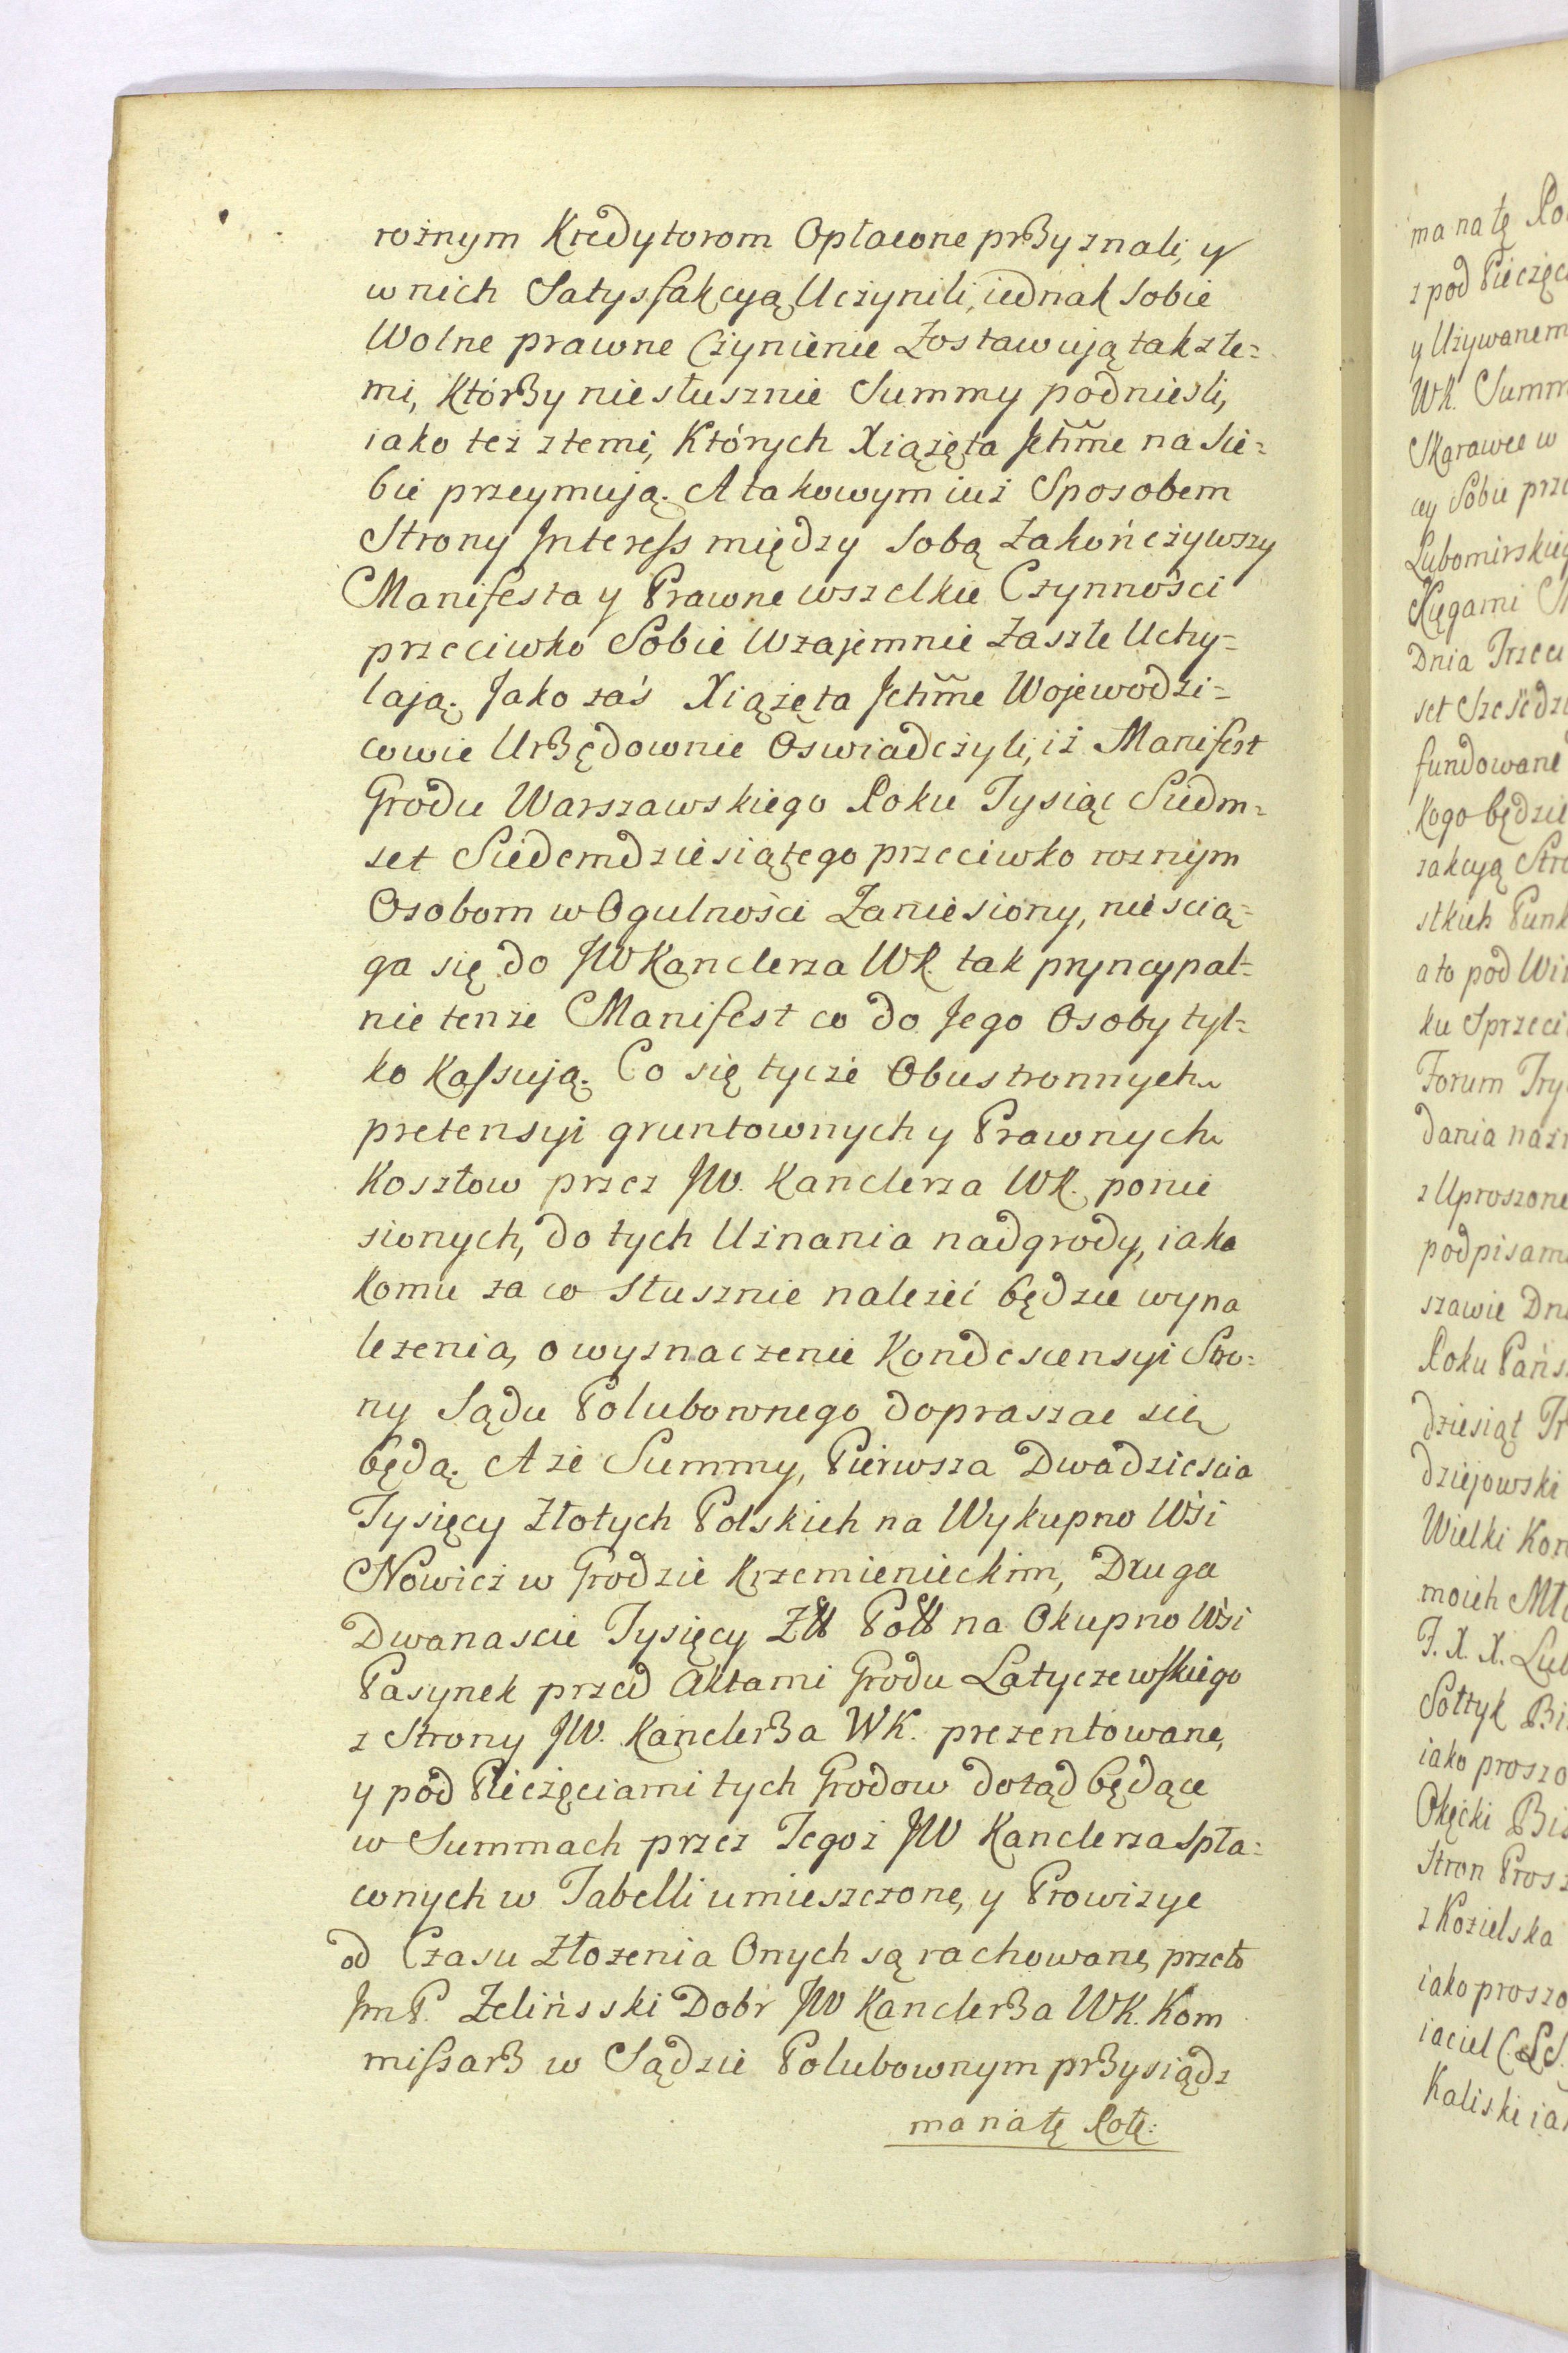 rożnym Kredytorom Opłacone przyznali, y
w nich Satysfakcyą Uczynili, iednak Sobie
Wolne prawne Czynienie Zostawują tak z te=
mi, którzy niesłusznie Summy podniesli,
iako też z temi, Których Xiążęta Jchmć na Sie=
bie przeymują. A takowym iuż Sposobem
Strony Interess między Sobą Zakończywszy
Manifesta y Prawne wszelkie Czynności
przeciwko Sobie Wzajemnie Zaszłe Uchy=
lają. Jako zaś Xiążęta Jchmć Wojewodzi=
cowie Urzędownie Oswiadczyli, iż Manifest
Grodu Warszawskiego Roku Tysiąc Siedm=
set Siedemdziesiątego przeciwko roznym
Osobom w Ogulności Zaniesiony, nie scią=
ga się do JW Kanclerza WK. tak pryncypal=
nie tenże Manifest co do Jego Osoby tyl=
ko Kassują. Co się tycze Obustronnych
pretensyi gruntownych y Prawnych
Kosztow przez JW. Kanclerza WK. ponie
sionych, do tych Uznania nadgrody, iako
komu za co Słusznie należeć będzie wyna
lezenia, o wyznaczenie Kondescensyi Stro=
ny Sądu Polubownego dopraszac się
będą. A że Summy, Pierwsza Dwadziescia
Tysięcy Złotych Polskich na Wykupno Wsi
Nowicz w Grodzie Krzemienieckim, Druga
Dwanascie Tysięcy Złł Poll na Okupno Wsi
Pasynek przed Aktami Grodu Latyczewskiego
z Strony JW. Kanclerza WK. prezentowane,
y pod Pieczęciami tych Grodow dotąd będące
w Summach przez Tegoż JW Kanclerza Spła=
conych w Tabelli umieszczone, y Prowizye
od Czasu Złożenia Onych są rachowane, przeto
Jm P. Zelińsski Dobr JW Kanclerza WK. Kom
missarz w Sądzie Polubownym przysiądz
ma na tę Rotę:
ma na tę
z pod
y Używanem
WK. Summ
Skarawce w
cey Sobie
Dnia
fundowane
Kogo będzie
a to pod
Forum
podpisam
szawie
Roku
dziesiąt
dziejowski
Wielki
moich
J. X. X.
Sołtyk
iako
Okęcki
Stron
z Kozielska
iako
iaciel
Kaliski